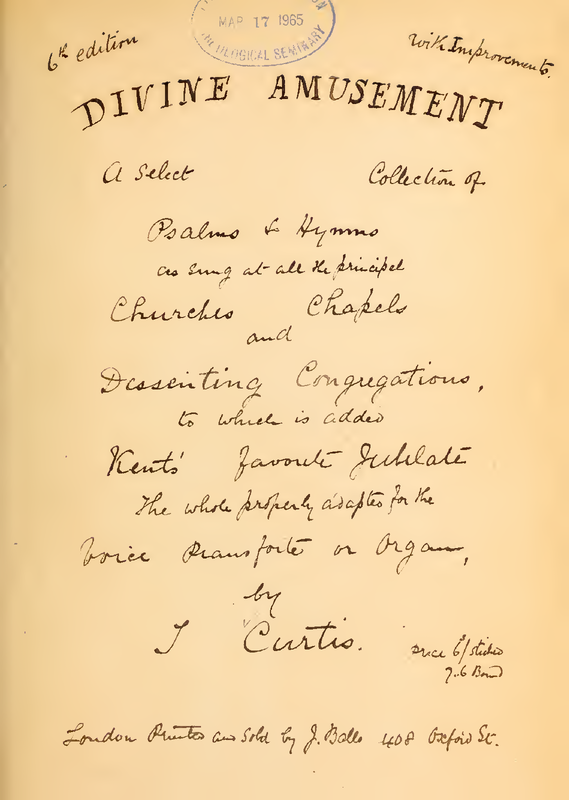 MAR 17 1965
THEOLOGICAL SEMINARY
6th edition
with Improvements.
DIVINE AMUSEMENT
A Select Collection of
Psalms & Hymns
as sung at all the principel
Churches Chapels
and
Dessenting Congregations,
to which is added
Kent's favorite Jubilate
The whole properly adapted for the
Voice Pianoforte or Organ,
by
T Curtis.
price 6/ stiched
7..6 Bound
London Printed and Sold by J. Balls 408 Oxford St.